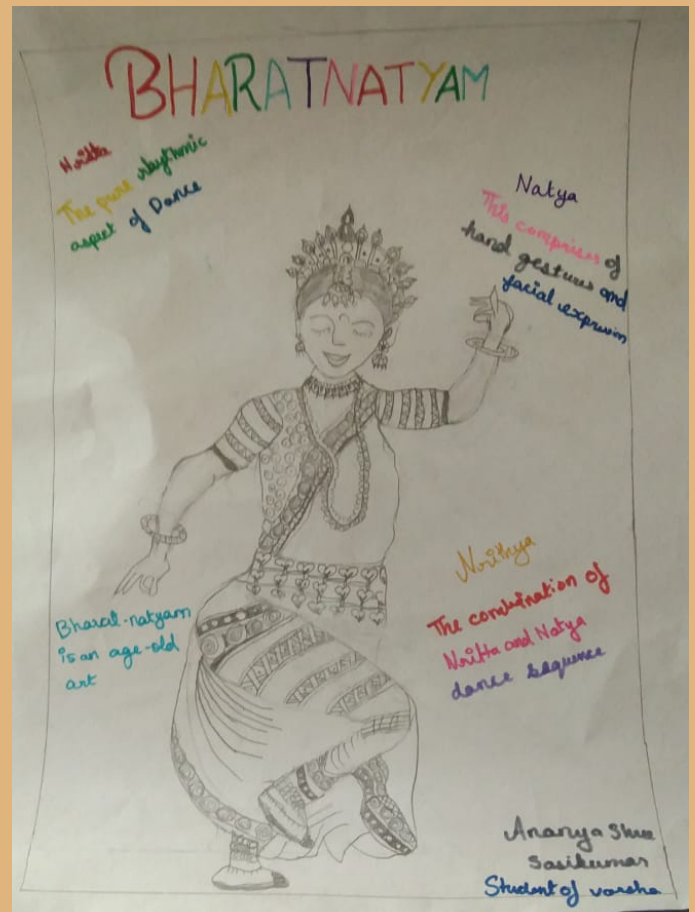 BHARATNATYAM
Nritta
The pure rhythmic
aspect of Dance
Natya
This comprises of
hand gestures and
facial expression
Nrithya
The combination of
Nritta and Natya
dance sequence
Bharat-natyam
is an age-old
art
Ananya Shree
Sasikumar
Student of varsha